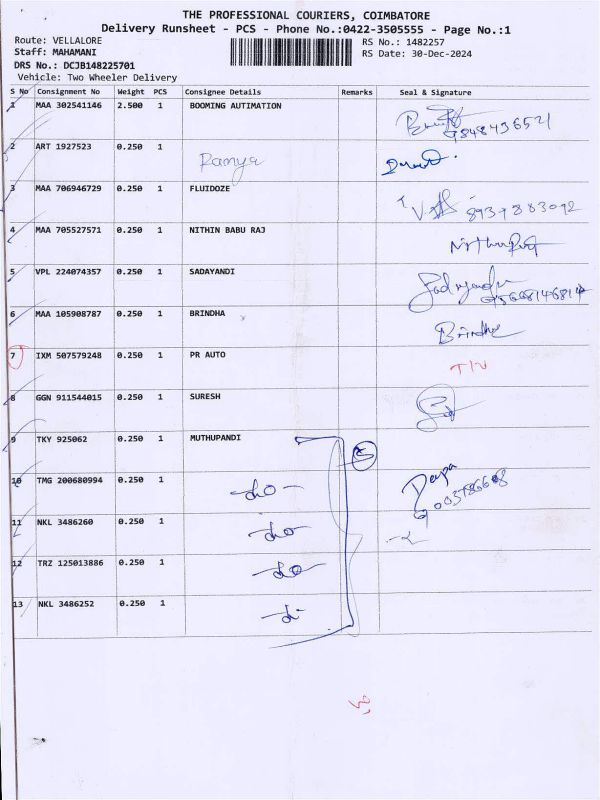 THE PROFESSIONAL COURIERS, COIMBATORE
Delivery Runsheet - PCS - Phone No.:0422-3505555 - Page No.:1
Route: VELLALORE RS No.: 1482257
Staff: MAHAMANI RS Date: 30-Dec-2024
DRS No.: DCJB148225701
Vehicle: Two Wheeler Delivery
S No Consignment No Weight PCS Consignee Details Remarks Seal & Signature
1 MAA 302541146 2.500 1 BOOMING AUTIMATION
2 ART 1927523 0.250 1 Ramya
3 MAA 706946729 0.250 1 FLUIDOZE
4 MAA 705527571 0.250 1 NITHIN BABU RAJ
5 VPL 224074357 0.250 1 SADAYANDI
6 MAA 105908787 0.250 1 BRINDHA Brindha
7 IXM 507579248 0.250 1 PR AUTO
8 GGN 911544015 0.250 1 SURESH
9 TKY 925062 0.250 1 MUTHUPANDI 5
10 TMG 200680994 0.250 1 -do- Deepa
11 NKL 3486260 0.250 1 -do
12 TRZ 125013886 0.250 1 -do
13 NKL 3486252 0.250 1